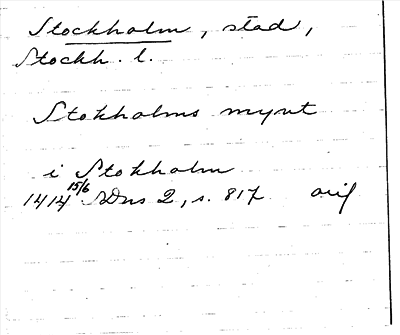 Stockholm, stad,
Stockh. l.
Stokholms mynt
i Stokholm
1414 15/6 SDns 2, s. 817 orig